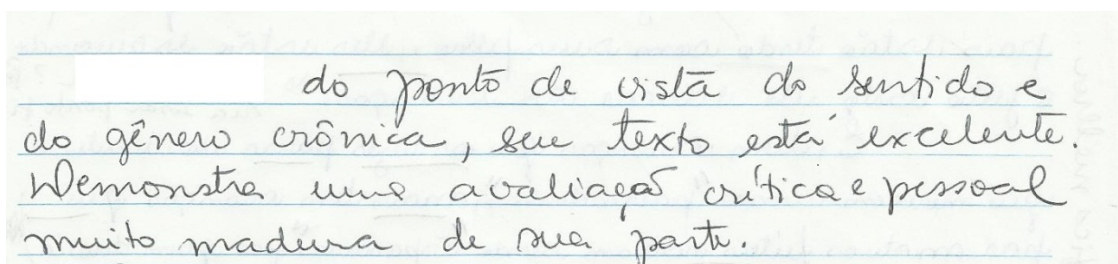 do ponto de vista do sentido e
do gênero crônica, seu texto está excelente.
Demonstra uma avaliação crítica e pessoal
muito madura de sua parte.